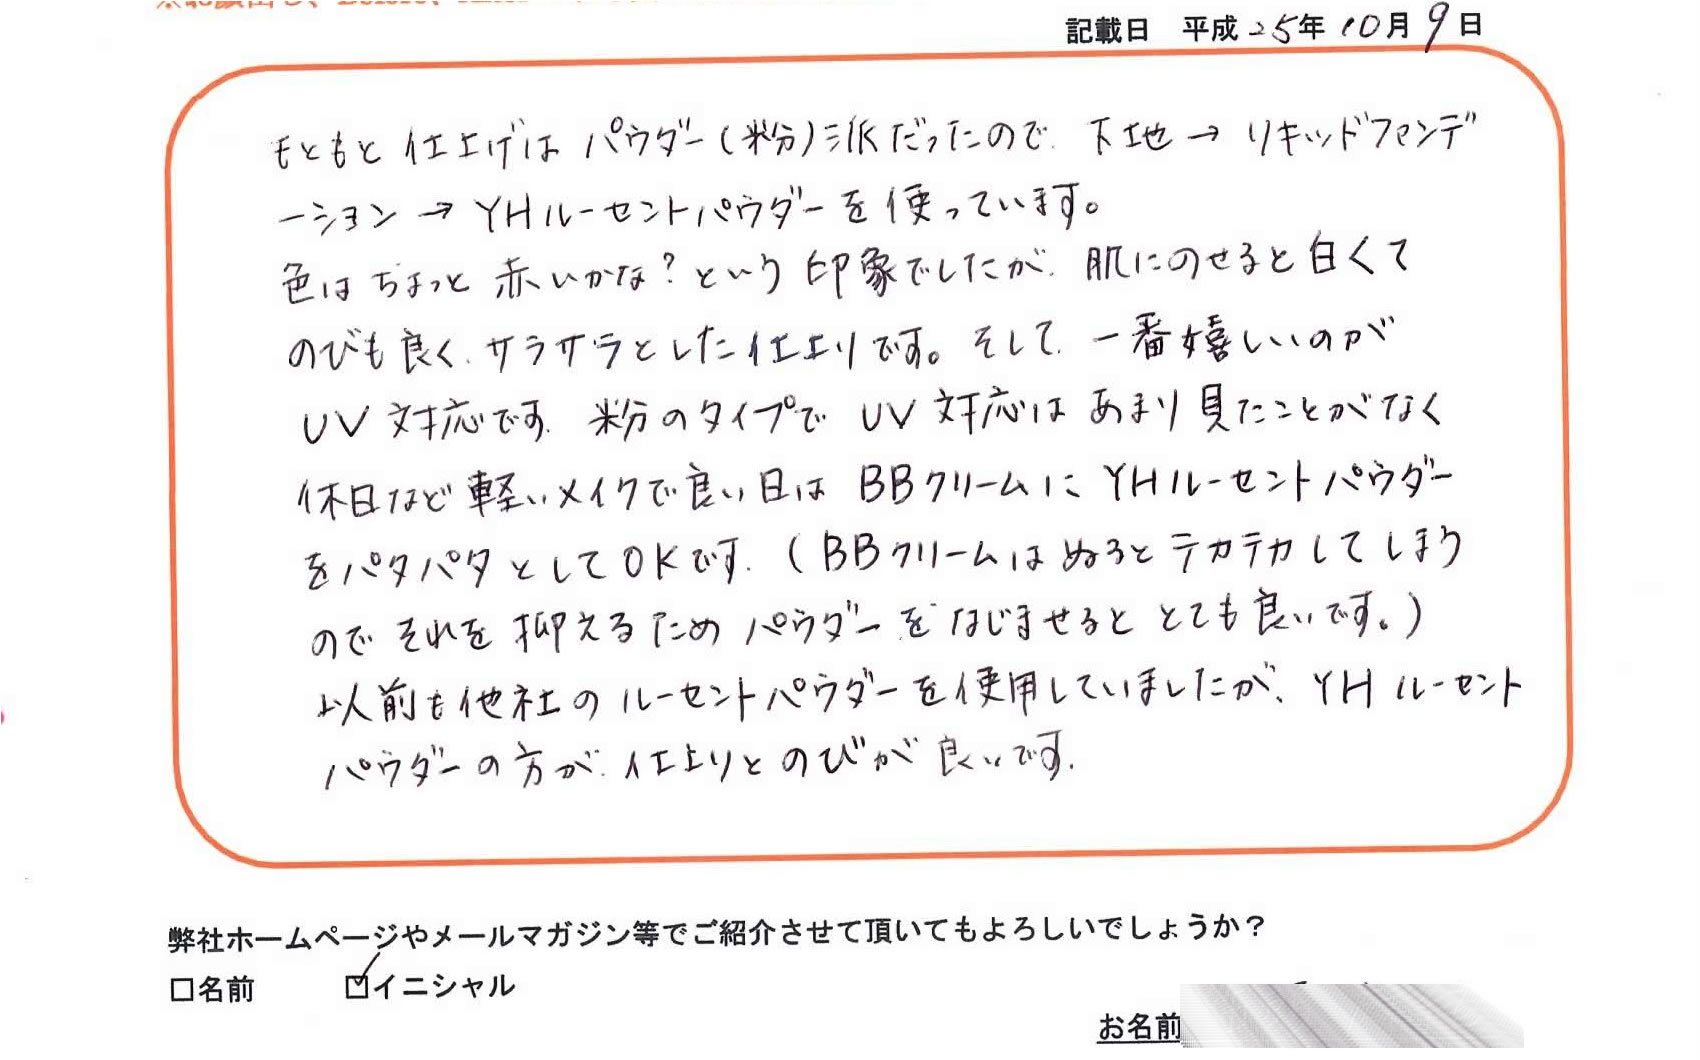 記載日 平成25年10月9日
もともと仕上げはパウダー(粉)派だったので、下地→リキッドファンデ
ーション→YHルーセントパウダーを使っています。
色はちょっと赤いかな?という印象でしたが、肌にのせると白くて
のびも良く、サラサラとした仕上りです。そして、一番嬉しいのが
UV対応です。粉のタイプでUV対応はあまり見たことがなく
休日など軽いメイクで良い日はBBクリームにYHルーセントパウダー
をパタパタとしてOKです。(BBクリームはぬるとテカテカしてしまう
のでそれを抑えるためパウダーをなじませるととても良いです。)
以前も他社のルーセントパウダーを使用していましたが、YHルーセント
パウダーの方が、仕上りとのびが良いです。
弊社ホームページやメールマガジン等でご紹介させて頂いてもよろしいでしょうか?
□名前 ☑イニシャル
お名前